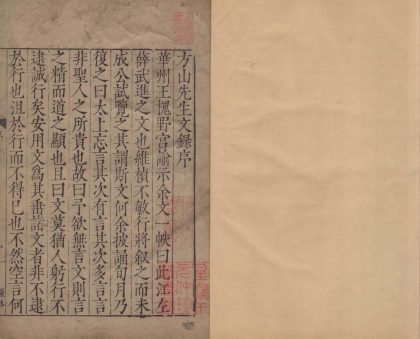 方山先生文錄序
華州王槐野宫諭示余文一帙曰此江左
薛武進之文也維楨不敏行將叙之而未
成公試覽之其謂斯文何余披誦旬月乃
復之曰太上忘言其次有言其次多言言
非聖人之所貴也故曰予欲無言文則言
之精而道之顯也且曰文莫猶人躬行不
逮誠行矣安用文爲其垂諸文者非不逮
於行也沮於行而不得已也不然空言何